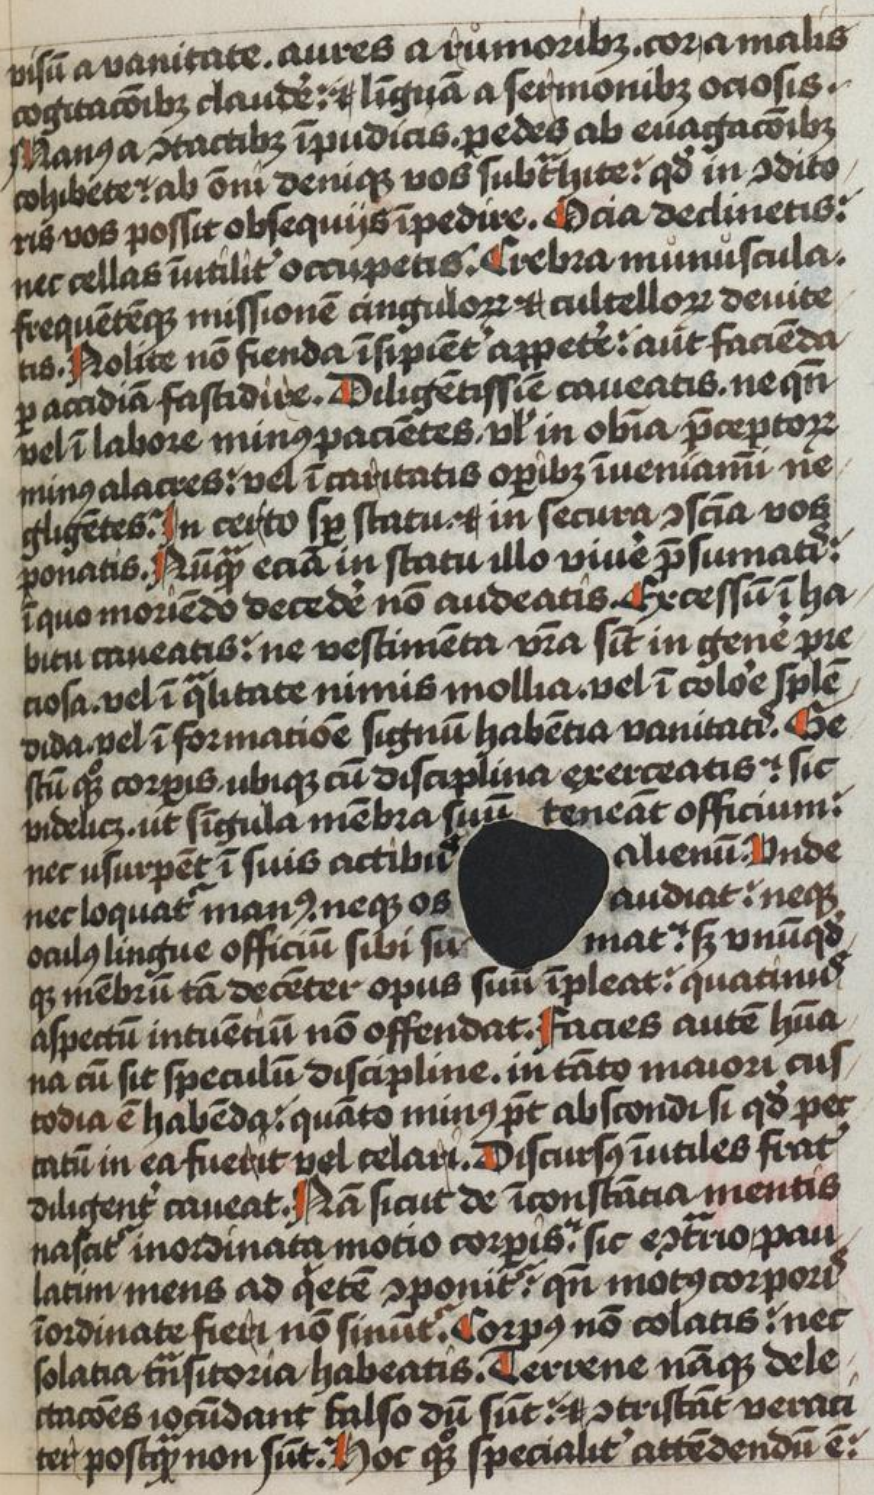 visū a vanitate. aures a rumoribꝫ. cor a malis
cogitacōibꝫ claudeˀ: ⁊ linguā a sermonibꝫ ociosis.
Manꝰ a ꝯtactibꝫ īpudicis. pedes ab euagacōibꝫ
cohibete: ab ōni deniqꝫ vos subtᵃhite: qd̄ in ꝯdito
ris vos possit obsequijs īpedire. Ocia declinetis:
nec cellas īutilitˀ occupetis. Crebra munuscula.
frequētēqꝫ missionē cingulorꝝ ⁊ cultellorꝝ deuite
tis. Nolite nō fienda īsipiētˀ appeteˀ: aut faciēda
ꝑ accidiā fastidire. Diligētissīe caueatis. ne qn̄
vel ī labore minꝰ paciētes. vl̓ in obīa p̄ceptorꝝ
minꝰ alacres: vel ī caritatis oꝑibꝫ īueniamī ne
gligētes. In certo sꝑ statu. ⁊ in secura ꝯsciā vos
ponatis. Nūqᵃꝫ eciā in statu illo viueˀ p̄sumatis:
ī quo moriēdo decedeˀ nō audeatis. Excessū ī ha
bitu caueatis: ne vestimēta vr̄a sīt in geneˀ pre
ciosa. vel ī qᵃlitate nimis mollia. vel ī coloˀe splē
dida. vel ī formatiōe signū habētia vanitatis. Ge
stū qꝫ corꝑis ubiqꝫ cū disciplina exerceatis: sic
videlicꝫ. ut sīgula mēbra suū teneāt officium:
nec usurpēt ī suis actibus alienū. Vnde
nec loquatʳ manꝰ. neqꝫ os audiat: neqꝫ
oculꝰ lingue officiū sibi su mat: sꝫ vnūqd̄
qꝫ mēbrū tā decēter opus suū īpleat: quatinus
aspectū intuētiū nō offendat. Facies autē hūa
na cū sit speculū discipline. in tāto maiori cus
todia ē habēda: quāto minꝰ pt̄ abscondi si qd̄ pec
catū in ea fuerit vel celari. Discursꝰ īutiles frat̓
diligentˀ caueat. Nā sicut de īconstācia mentis
nascitʳ inordinata motio corꝑis: sic eꝯtᵃrio pau
latim mens ad qⁱetē ꝯponitʳ: qn̄ motꝰ corporis
īordinate fieri nō sinūtʳ. Corpꝰ nō colatis: nec
solatia trn̄sitoria habeatis. Terrene nāqꝫ dele
ctacōes iocūdant falso dū sūt: ⁊ ꝯtristāt veraci
ter postqᵃꝫ non sūt. Hoc qꝫ specialitˀ attēdendū ē: